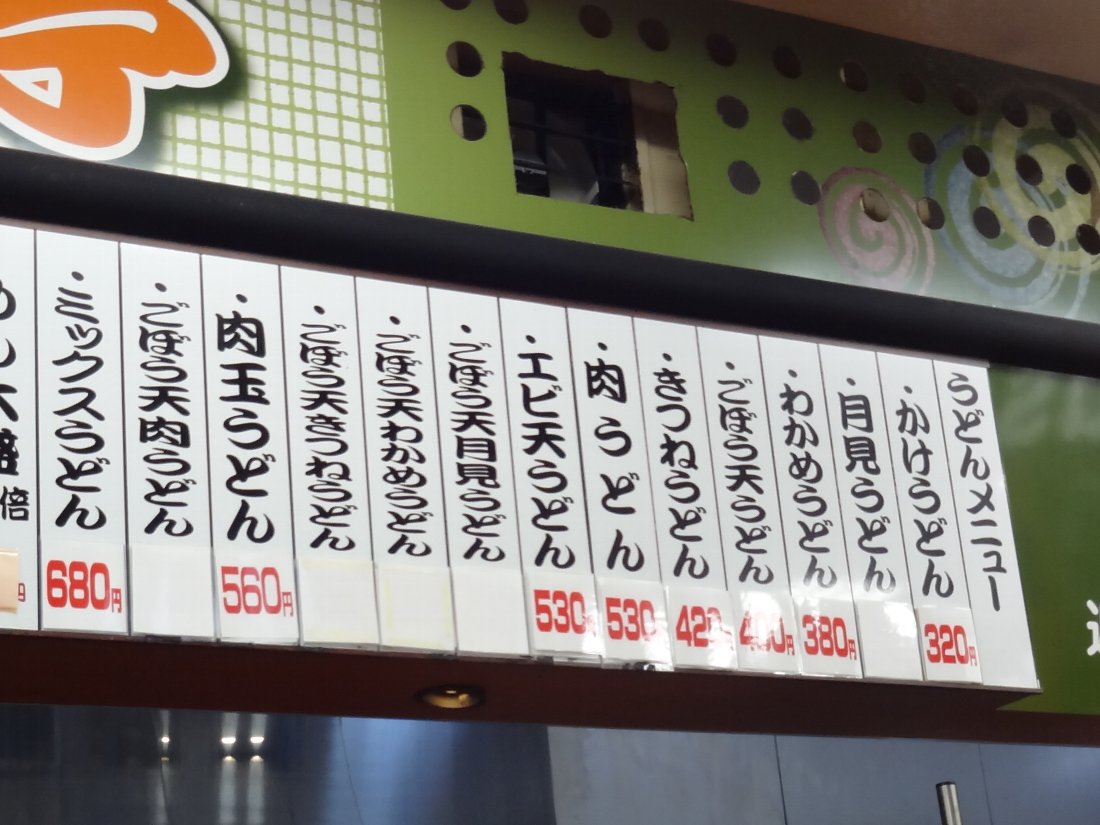 うどんメニュー
・かけうどん
320円
・月見うどん
・わかめうどん
380円
・ごぼう天うどん
・きつねうどん
420円
・肉うどん
530円
・エビ天うどん
530円
・ごぼう天月見うどん
・ごぼう天わかめうどん
・ごぼう天きつねうどん
・肉玉うどん
560円
・ごぼう天肉うどん
・ミックスうどん
680円
倍